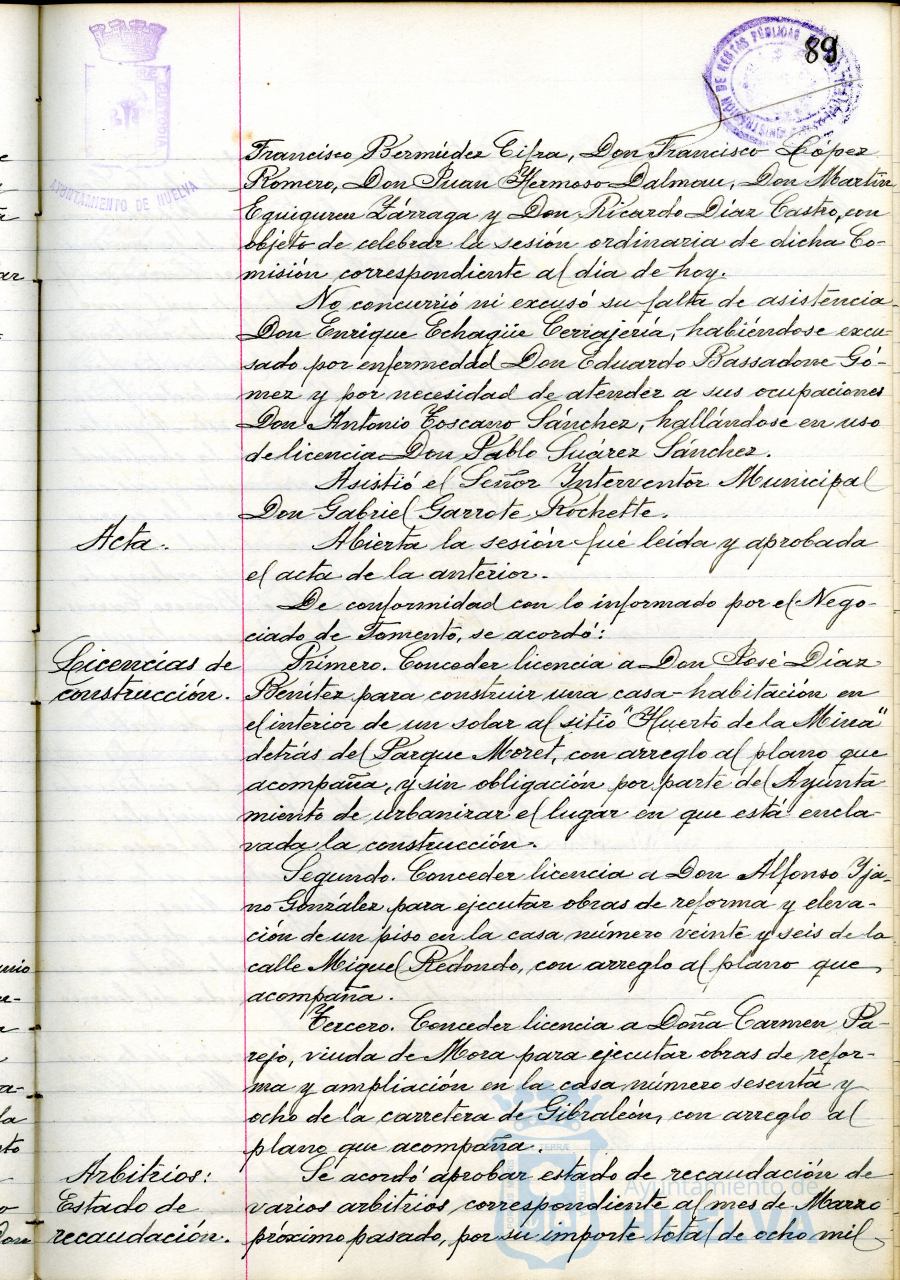 89
AYUNTAMIENTO DE HUELVA
Francisco Bermúdez Cifra, Don Francisco López
Romero, Don Juan Hermoso Dalmau, Don Martín
Eguiguren Zárraga y Don Ricardo Díaz Castro, con
objeto de celebrar la sesión ordinaria de dicha Co-
misión correspondiente al día de hoy.
No concurrió ni excusó su falta de asistencia
Don Enrique Echagüe Cerrajería, habiéndose excu-
sado por enfermedad Don Eduardo Bassadone Gó-
mez y por necesidad de atender a sus ocupaciones
Don Antonio Toscano Sánchez, hallándose en uso
de licencia Don Pablo Suárez Sánchez.
Asistió el Señor Interventor Municipal
Don Gabriel Garrote Rochette.
Acta.
Abierta la sesión fué leída y aprobada
el acta de la anterior.
De conformidad con lo informado por el Nego-
ciado de Fomento, se acordó:
Licencias de
construcción.
Primero. Conceder licencia a Don José Díaz
Benítez para construir una casa-habitación en
el interior de un solar al sitio "Huerto de la Mina"
detrás del Parque Moret, con arreglo al plano que
acompaña, y sin obligación por parte del Ayunta
miento de urbanizar el lugar en que está encla-
vada la construcción.
Segundo. Conceder licencia a Don Alfonso Yja-
no González para ejecutar obras de reforma y eleva-
ción de un piso en la casa número veinte y seis de la
calle Miguel Redondo, con arreglo al plano que
acompaña.
Tercero. Conceder licencia a Doña Carmen Pa-
rejo, viuda de Mora para ejecutar obras de refor-
ma y ampliación en la casa número sesenta y
ocho de la carretera de Gibraleón, con arreglo al
plano que acompaña.
Arbitrios:
Estado de
recaudación.
Se acordó aprobar estado de recaudación de
varios arbitrios correspondiente al mes de Marzo
próximo pasado, por su importe total de ocho mil
Ayuntamiento de
HUELVA